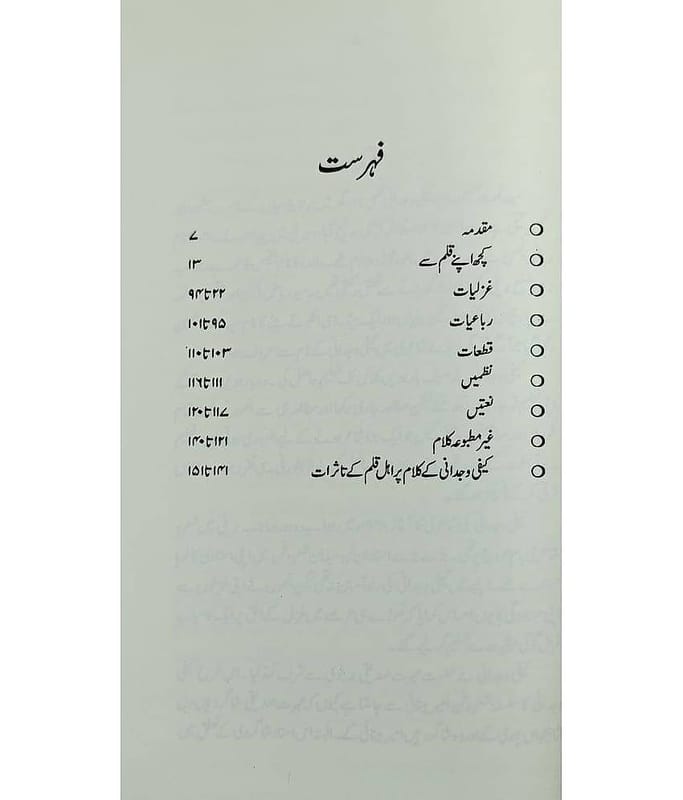 فہرست
○ مقدمہ ۷
○ کچھ اپنے قلم سے ۱۳
○ غزلیات ۲۲ تا ۹۴
○ رباعیات ۹۵ تا ۱۰۱
○ قطعات ۱۰۳ تا ۱۱۰
○ نظمیں ۱۱۱ تا ۱۱۶
○ نعتیں ۱۱۷ تا ۱۲۰
○ غیر مطبوعہ کلام ۱۲۱ تا ۱۴۰
○ کیفی وجدانی کے کلام پر اہل قلم کے تاثرات ۱۴۱ تا ۱۵۱